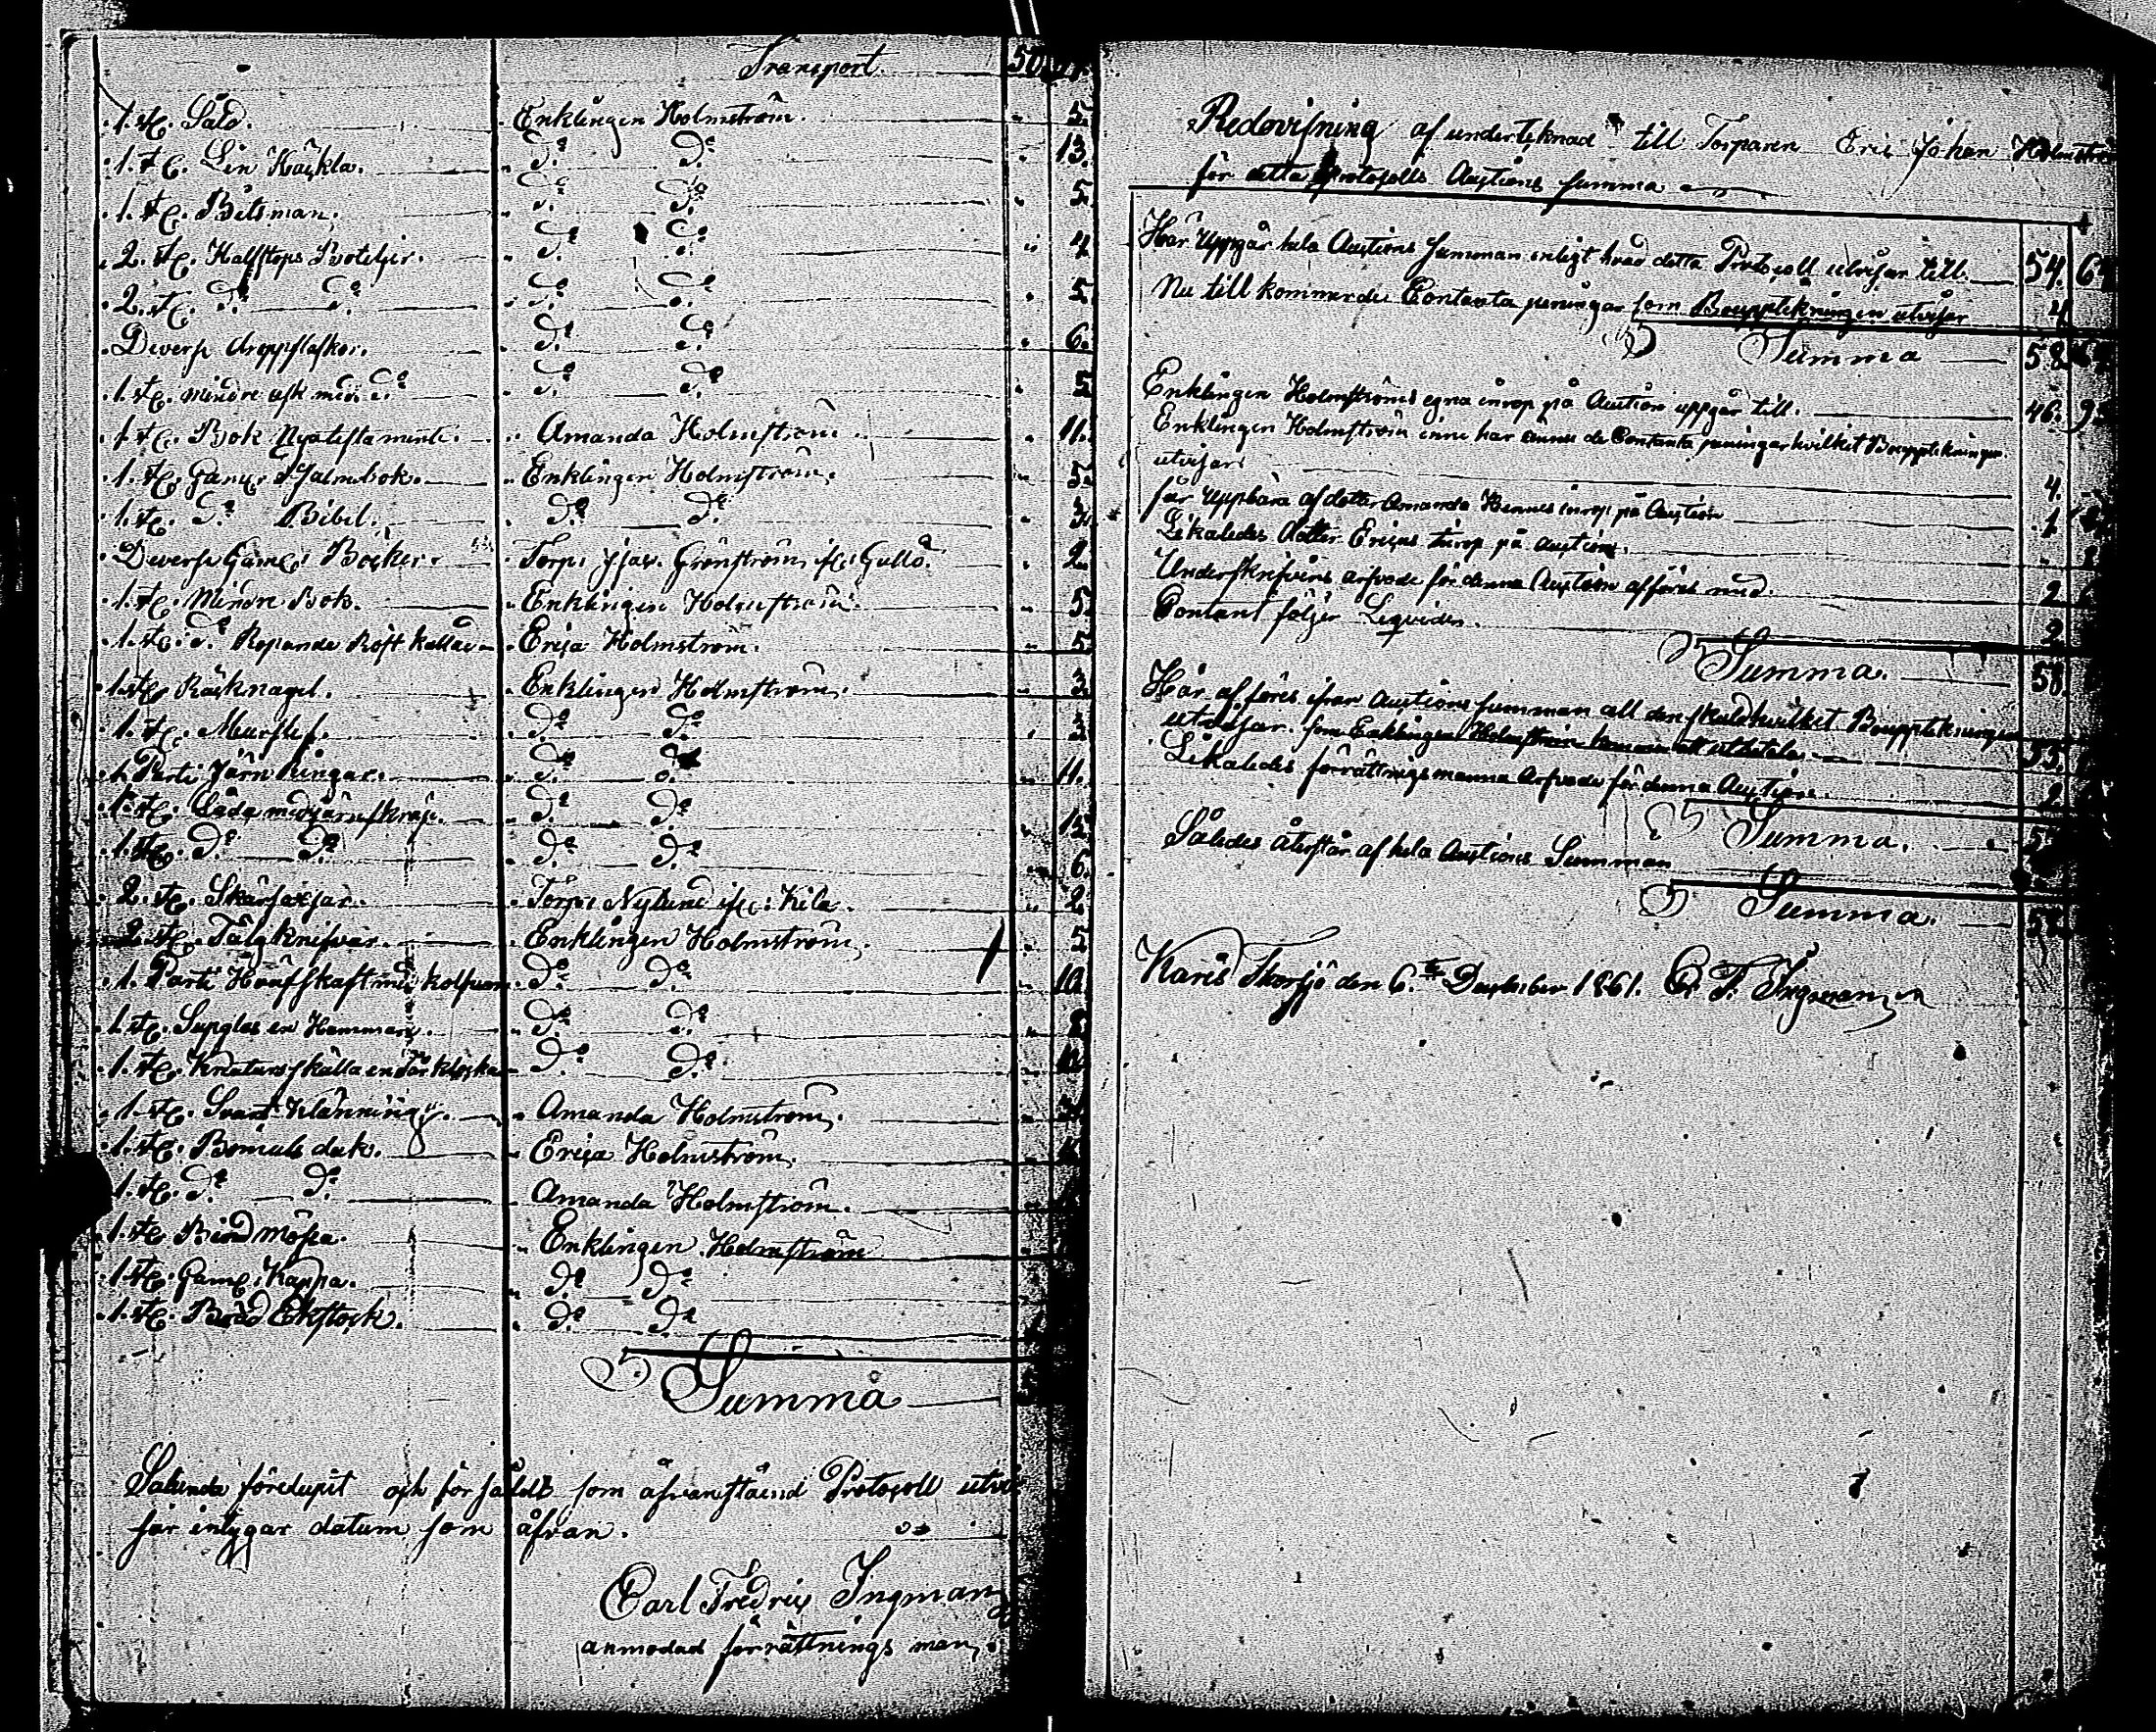 Transport 50
1. st. Såld. Enklingen Holmström. 5.
1. st. Lin Häckla. do do 13.
1. st. Bitsman. do do 5.
2. st. Halfstops Boteljer. do do 4
2. st. do do do do 5.
Diverse droppflaskor. do do 6.
1. st. mindre ask med do do do 5
1. st. Bok Nyatestamente. Amanda Holmström. 11.
1. st. Gaml. Psalmbok. Enklingen Holmström. 5.
1. st. do Bibel. do do 3.
Diverse Gaml: Böcker. Torp: Isac. Grönström, Gullö. 2.
1. st. Mindre Bok. Enklingen Holmström. 5.
1. st. do Ropande Röst kallad Erica Holmström. 5
1. st. Räcknagel. Enklingen Holmström. 3.
1. st. Murslef. do do 3
1. Parti Järn Ringar. do do 11.
1. st. Låda med järnskrap. do do 12
1. st. do do do do 6.
2. st. Skärsaxar. Torp: Nylund Kila. 2
2. st. Tälgknifvar. Enklingen Holmström. 5
1. Parti Räfskaft med do do 10
1. st. Supglas en Hammare. do do 2
1. st. skälla en do do
1. st. Svart Klänning. Amanda Holmström.
1. st. Bomuls duk. Erica Holmström.
1. st. do do Amanda Holmström.
1. st. Bind mössa. Enklingen Holmström
1. st. Gaml: Kappa. do do
1. st. Bräd Ekstock. do do
Summa
Sålunda förelupit och försåldt som åfvanstående Protocoll utvi
sar intygar datum som åfvan.
Carl Fredric Ingman
anmodad förrättnings man,
Redovisning af undertecknad till Torparen Eric Johan Holmström
för detta Protocolls Auctions summa
Här Uppgår hela Auctions summan enligt hvad detta Protocoll utvisar till. 54. 6
Nu till kommande Contanta peningar som Bouppteckningen utvisar 4
Summa 58
Enklingen Holmströms egna inrop på Auction uppgår till. 46. 9
Enklingen Holmström inne har ännu de Contanta peningar hvilket Bouppteckningen
utvisar 4.
får Uppbära af dotter Amanda Hennes inrop på Auction 1
Likaledes dotter Ericas Inrop på auction.
Underskrifvens arfvode för denna Auction afföres med. 2
Contant följer Liqviden. 2
Summa. 58.
Här afföres ifrån Auctions summan all den skuld hvilket Bouppteckningen
utvisar. som Enklingen Holmström kommer att utbetala 55.
Likaledes förrättnings manna Arfvode för denna Auction. 2
Summa. 5
Således återstår af hela Auctions Summan
Summa.
Karis Thorsjö den 6.te December 1861. C. F. Ingman